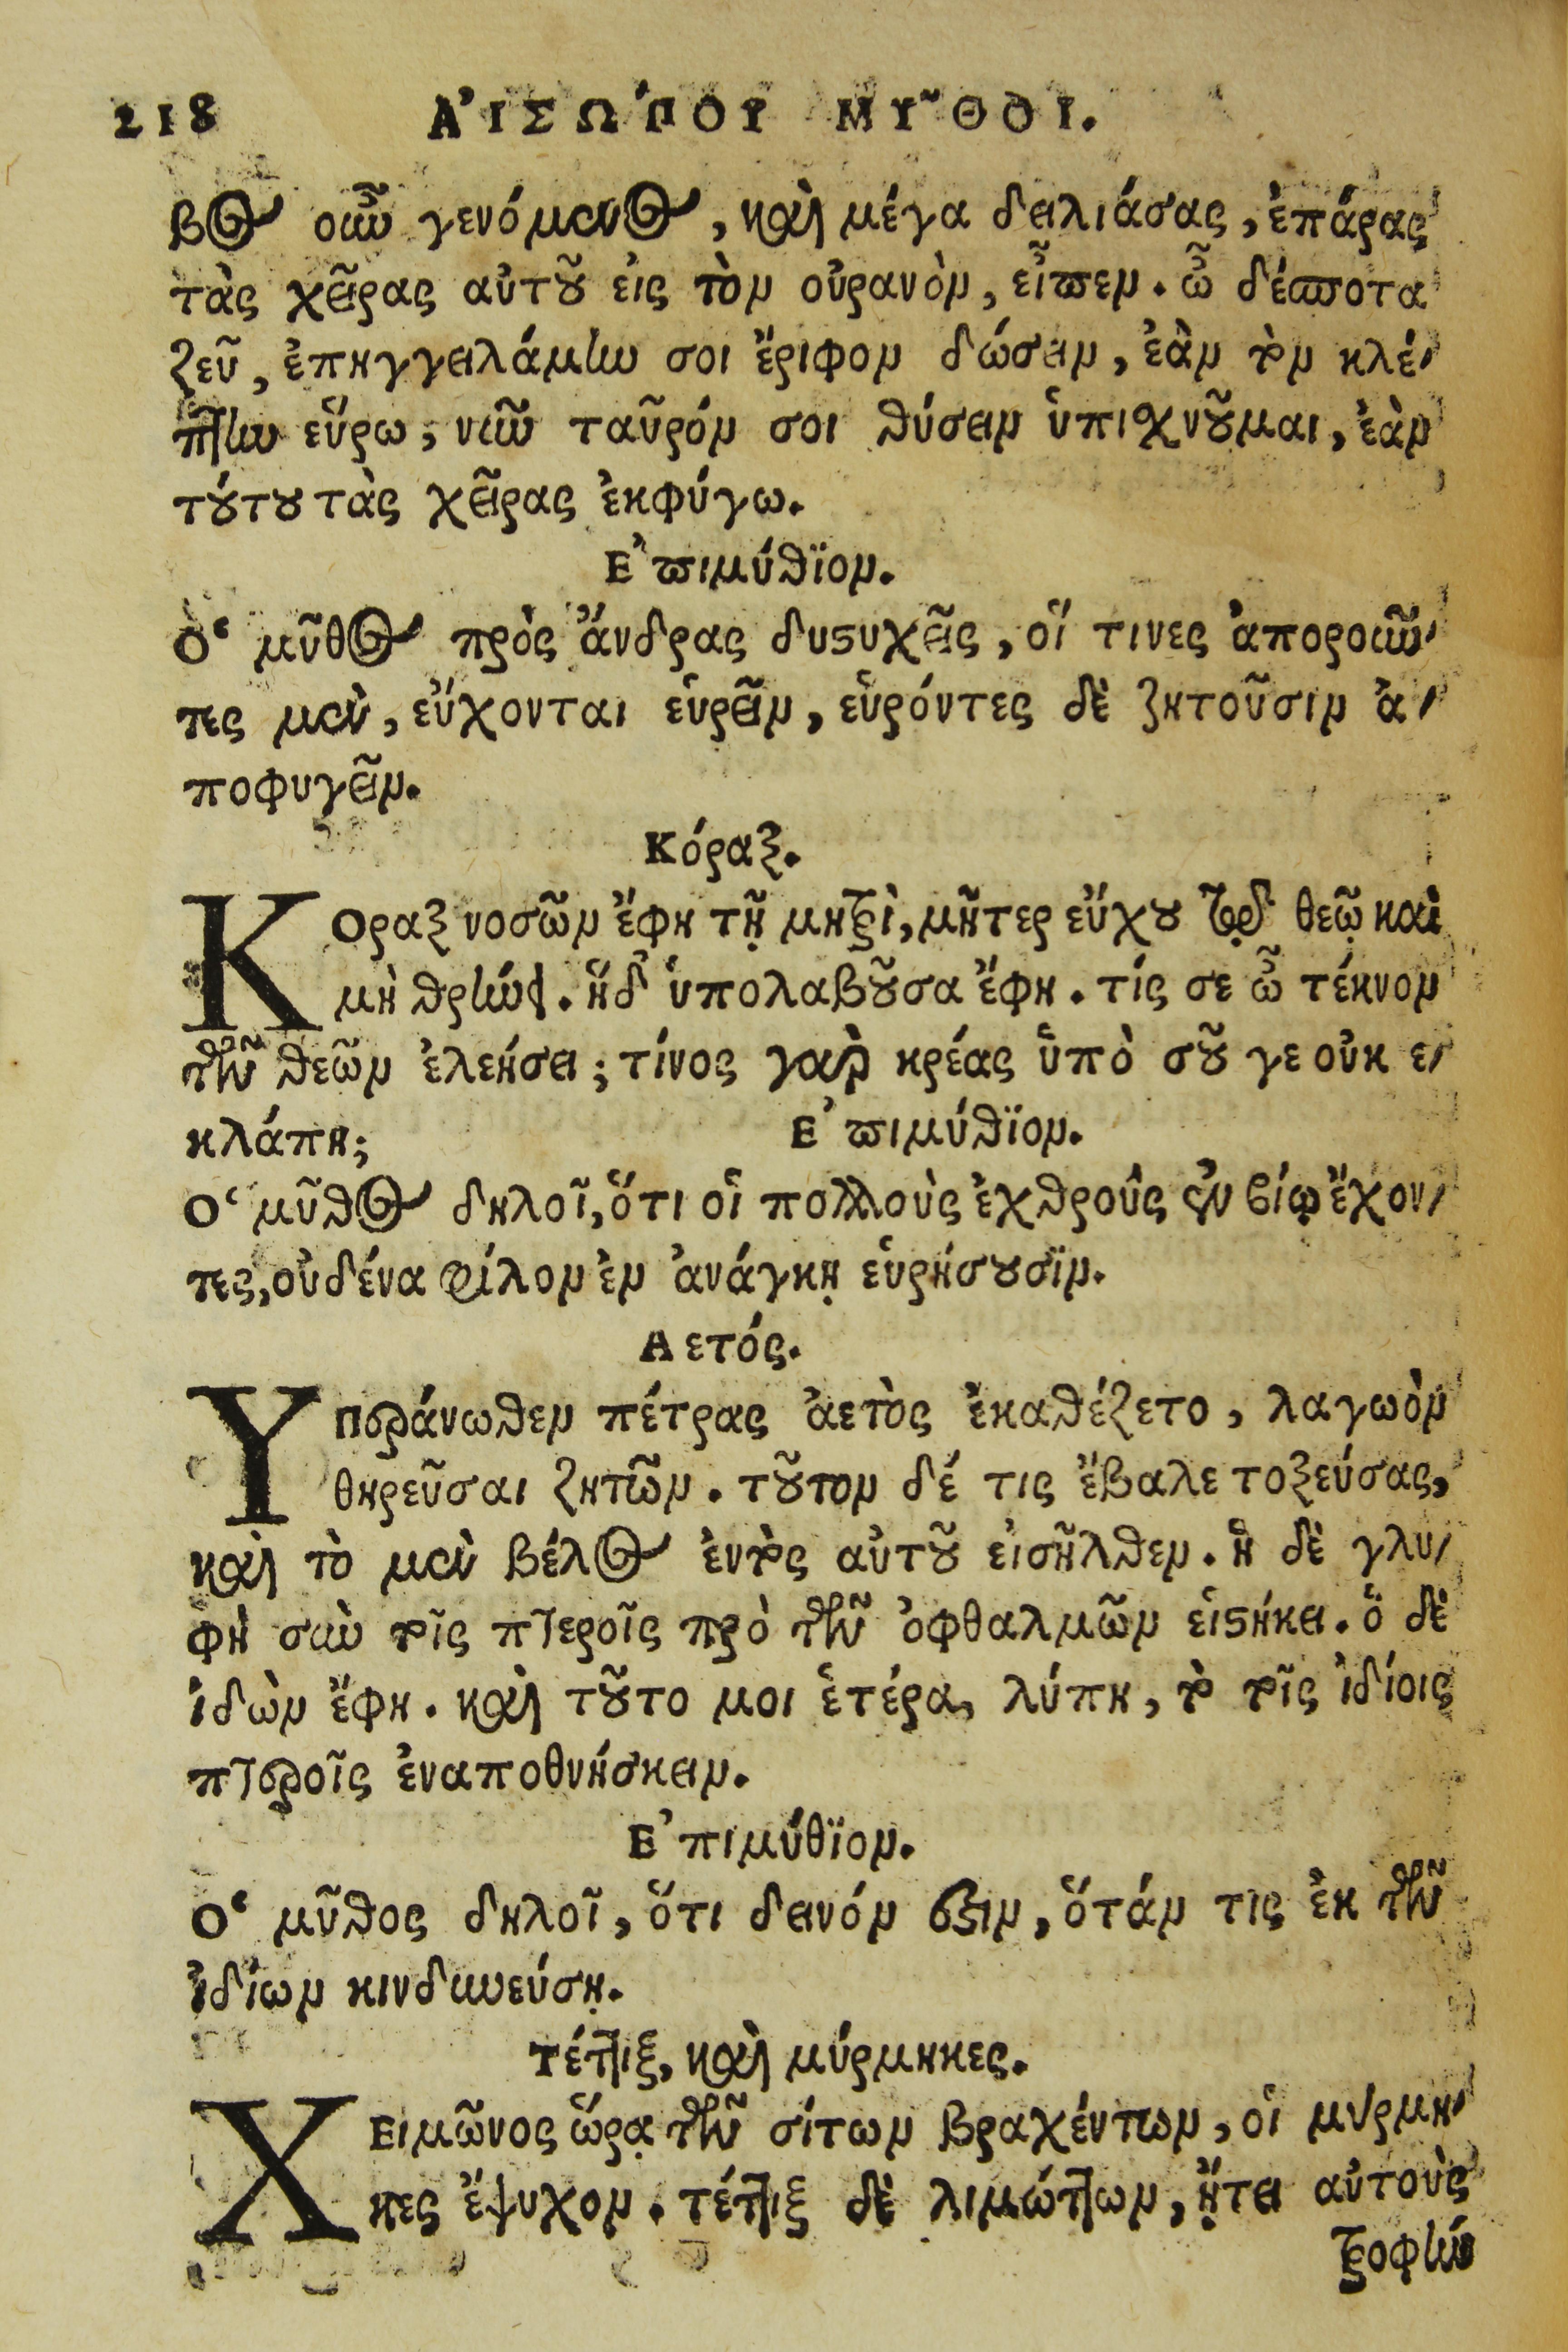 218 ΑἸΣΩΠΟΥ ΜΥ͂ΘΟΙ.
βος οὖν γενόμενος, καὶ μέγα δειλιάσας, ἐπάρας
τὰς χεῖρας αὐτοῦ εἰς τὸν οὐρανὸν, εἶπεν. ὦ δέσποτα
ζεῦ, ἐπηγγειλάμην σοι ἔριφον δώσειν, ἐὰν τὸν κλέ-
πτην εὕρω; νῦν ταῦρόν σοι θύσειν ὑπισχνοῦμαι, ἐὰν
τούτου τὰς χεῖρας ἐκφύγω.
Ἐπιμύθϊον.
Ὁ μῦθος πρὸς ἄνδρας δυστυχεῖς, οἵ τινες ἀποροῦν-
τες μὲν, εὔχονται εὑρεῖν, εὑρόντες δὲ ζητοῦσιν ἀ-
ποφυγεῖν.
Κόραξ.
ΚΟραξ νοσῶν ἔφη τῇ μητρὶ, μῆτερ εὔχου τῷ θεῷ καὶ
μὴ θρήνει. ἡ δ' ὑπολαβοῦσα ἔφη. τίς σε ὦ τέκνον
τῶν θεῶν ἐλεήσει; τίνος γὰρ κρέας ὑπὸ σοῦ γε οὐκ ε-
κλάπη;
Ἐπιμύθϊον.
Ὁ μῦθος δηλοῖ, ὅτι οἱ πολλοὺς ἐχθροὺς ἐν βίῳ ἔχον-
τες, οὐδένα φίλον ἐν ἀνάγκῃ εὑρήσουσϊν.
Αετός.
ΥΠεράνωθεν πέτρας ἀετὸς ἐκαθέζετο, λαγωὸν
θηρεῦσαι ζητῶν. τοῦτον δέ τις ἔβαλε τοξεύσας,
καὶ τὸ μὲν βέλος ἐντὸς αὐτοῦ εἰσῆλθεν. ἡ δὲ γλυ-
φὴ σὺν τοῖς πτεροῖς πρὸ τῶν ὀφθαλμῶν εἱστήκει. ὁ δὲ
ἰδὼν ἔφη. καὶ τοῦτο μοι ἑτέρα, λύπη, τὸ τοῖς ἰδίοις
πτεροῖς ἐναποθνήσκειν.
Ἐπιμύθϊον.
Ὁ μῦθος δηλοῖ, ὅτι δεινόν ἐστιν, ὅτάν τις ἐκ τῶν
ἰδίων κινδυνεύσῃ.
Τέττιξ, καὶ μύρμηκες.
ΧΕιμῶνος ὥρᾳ τῶν σίτων βραχέντων, οἱ μύρμη-
κες ἔψυχον. τέττιξ δὲ λιμώττων, ᾔτει αὐτοὺς
τροφήν